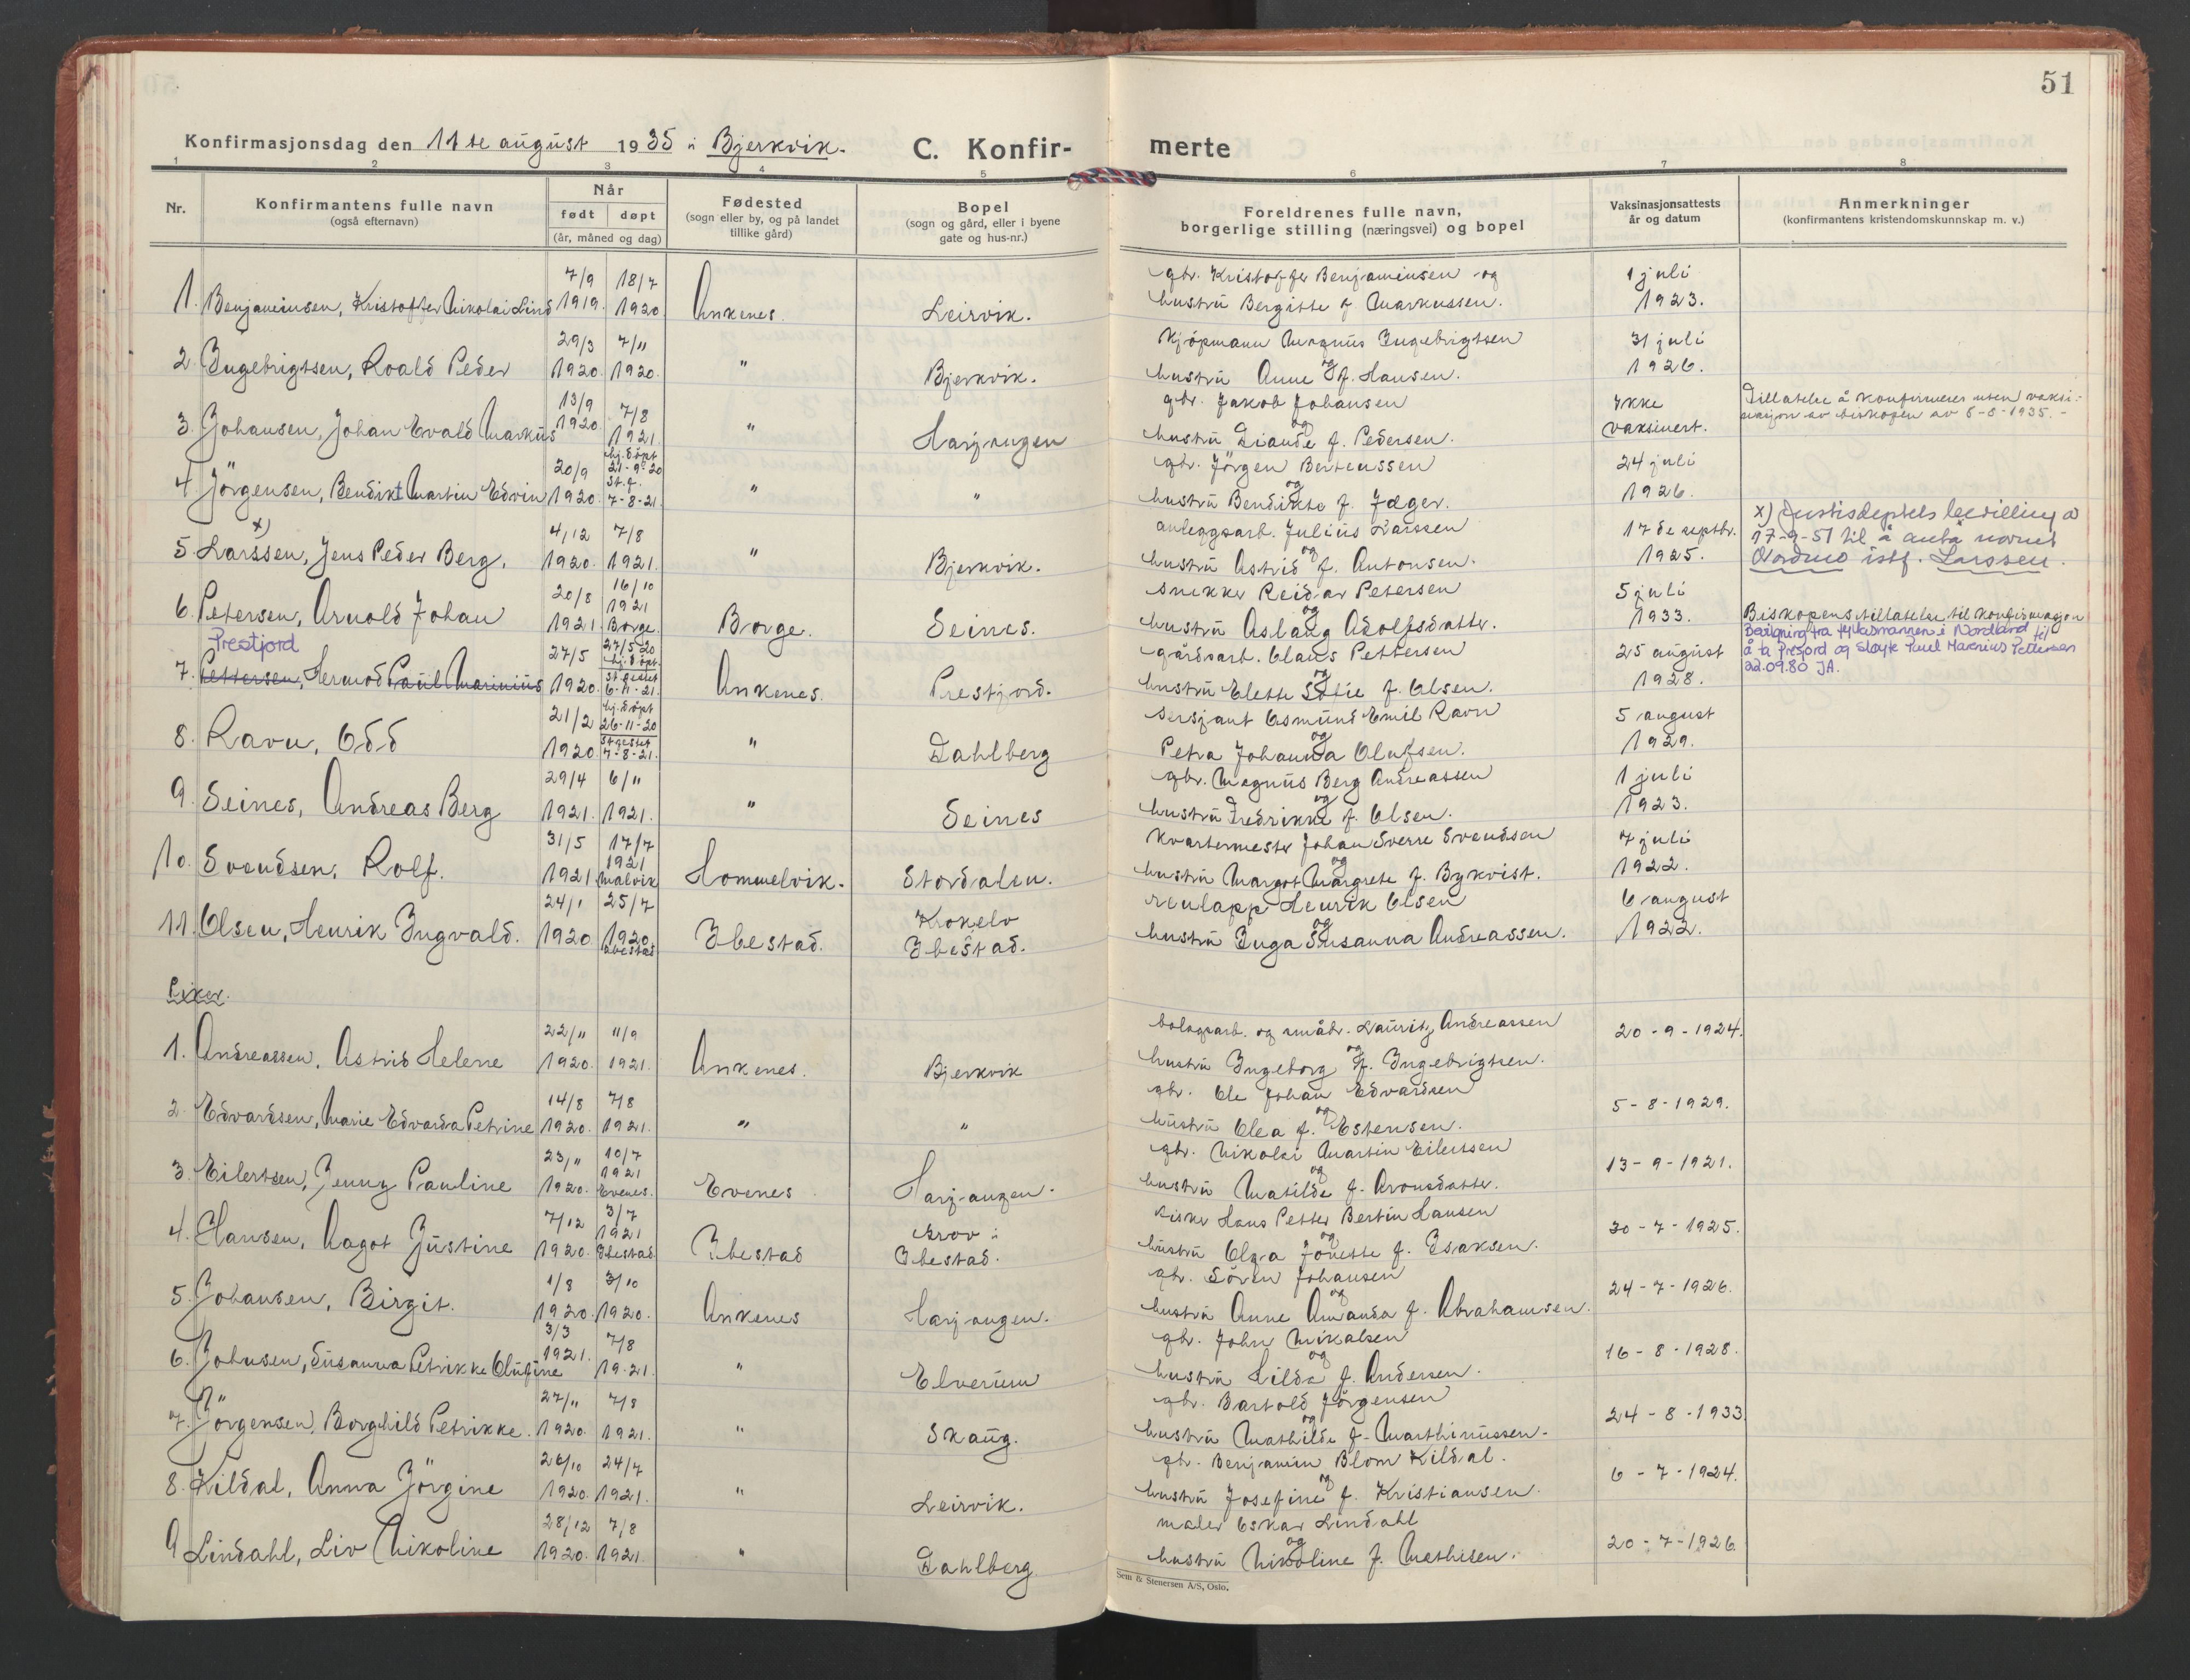 51
Konfirmasjonsdag den 11te august 1935 i Bjerkvik.
C. Konfirmerte
1 2 3 4 5 6 7 8
Nr. | Konfirmantens fulle navn (også efternavn) | Når født | døpt (år, måned og dag) | Fødested (sogn eller by, og på landet tillike gård) | Bopel (sogn og gård, eller i byene gate og hus-nr.) | Foreldrenes fulle navn, borgerlige stilling (næringsvei) og bopel | Vaksinasjonsattests år og datum | Anmerkninger (konfirmantens kristendomskunnskap m. v.)
1. Benjaminsen, Kristoffer Nikolai Lind 7/9 1919. 18/7 1920 Ankenes. Leirvik. gbr. Kristoffer Benjaminsen og hustrü Bergitte f Markussen. 1 juli 1923.
2 Ingebrigtsen, Roald Peder 29/3 1920. 7/11 1920. " Bjerkvik. Kjöpmann Magnüs Ingebrigtsen og hustrü Anne f. Hansen. 31 juli 1926.
3. Johansen, Johan Evald Marküs 13/9 1920. 7/8 1921. " Harjangen gbr. Jakob Johansen og hustrü f. Pedersen. Ikke vaksinert. Tillatelse å konfirmeres uten vaksinasjon av biskopen av 6-8-1935.-
4 Jörgensen, Bendikt Martin Edvin 20/9 1920. hj. döpt 21-9-20 st. f. 7-8-21. " " gbr. Jörgen Berteussen og hustrü Bendikte f. Jæger. 24 juli 1926.
5. x) Larssen, Jens Peder Berg. 4/12 1920. 7/8 1921. " Bjerkvik. anleggsarb. Juliüs Larssen og hustrü Astrid f. Antonsen. 17 de septbr. 1925. x) Justisdeptets bevilling av 17-9-51 til å anta navnet Nordmo istf. Larssen.
6. Petersen, Arnold Johan 20/8 1921 16/10 1921 Borge. Borge. Seines. snekker Reidar Petersen og hustrü Aslaug Adolfsdatter. 5 juli 1933. Biskopens tillatelse til konfirmasjon
Prestjord
7. Pettersen, Hermod Paül Mariniüs 27/5 1920. 27/5 20 hj. döpt. st festet 6-11-21. Ankenes. Prestjord. gårdsarb. Claus Pettersen og hustrü Elette Sofie f. Olsen. 25 august 1928. Bevilgning fra fylkesmannen i Nordland til å ta presjord og sløyfe Paul Marinius Pettersen 22.09.80 JA.
8. Ravn, Odd 21/2 1920. hj. döpt 26-11-20 st festet 7-8-21. " Dahlberg sersjant Osmünd Emil Ravn og Petra Johanna Olufsen. 5 august 1929.
9. Seines, Andreas Berg 29/4 1921. 6/11 1921. " Seines gbr. Magnüs Berg Andreassen og hustrü Fredrikke f. Olsen. 1 juli 1923.
10. Svendsen, Rolf. 31/5 1921 17/7 1921 Malvik Hommelvik. Stordalen. Kvartermester Johan Sverre Svendsen og hustrü Margot Margrete f. Bykvist. 7 juli 1922.
11. Olsen, Henrik Ingvald. 24/1 1920 25/7 1920 Ibestad Ibestad. Krokelv Ibestad. renlapp Henrik Olsen og hustrü Inga Susanna Andreassen. 6 august 1922.
Piker.
1. Andreassen, Astrid Helene 22/11 1920. 11/9 1921. Ankenes. Bjerkvik bolagsarb. og småbr. Lauritz Andreassen og hustrü Ingeborg f. Ingebrigtsen. 20-9-1924.
2. Edvardsen, Marie Edvarda Petrine 14/8 1920. 7/8 1921. " " gbr. Ole Johan Edvardsen og hüstrü Olea f. Estensen. 5-8-1929.
3. Eilertsen, Jenny Pauline 23/11 1920. 10/7 1921 Evenes. Evenes Harjangen. gbr. Nikolai Martin Eilertsen og hustrü Matilde f. Aronsdatter. 13-9-1921.
4. Hansen, Aagot Jüstine 7/12 1920. 3/7 1921 Ibestad Ibestad Grov i Ibestad. fisker Hans Petter Bertin Hansen og hüstrü Olga Jonette f. Isaksen. 30-7-1925.
5. Johansen, Birgit. 1/8 1920. 3/10 1920. Ankenes Harjangen. gbr. Sören Johansen og hustrü Anne Amanda f. Abrahamsen. 24-7-1926.
6. Johnsen, Süsanna Petrikke Olüfine 3/3 1921. 7/8 1921. " Elverüm gbr. John Mikalsen og hustrü Hilda f. Andersen. 16-8-1928.
7. Jörgensen, Borghild Petrikke. 27/11 1920. 7/8 1921. " Skaüg. gbr. Bartold Jörgensen og hustrü Mathilde f. Marthinüssen. 24-8-1933
8. Kildal, Anna Jörgine 26/10 1920. 24/7 1921. " Leirvik. gbr. Benjamin Blom Kildal. og hustrü Josefine f. Kristiansen. 6-7-1924.
9 Lindahl, Liv Nikoline 28/12 1920. 7/8 1921. " Dahlberg maler Oskar Lindahl og hustrü Nikoline f. Mathisen. 20-7-1926.
Sem & Stenersen A/S, Oslo.